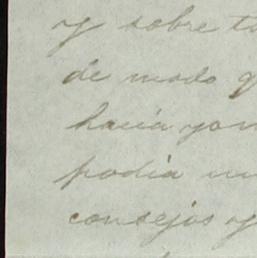 y sobre t
de modo q
hacia yo
podia
consejos y